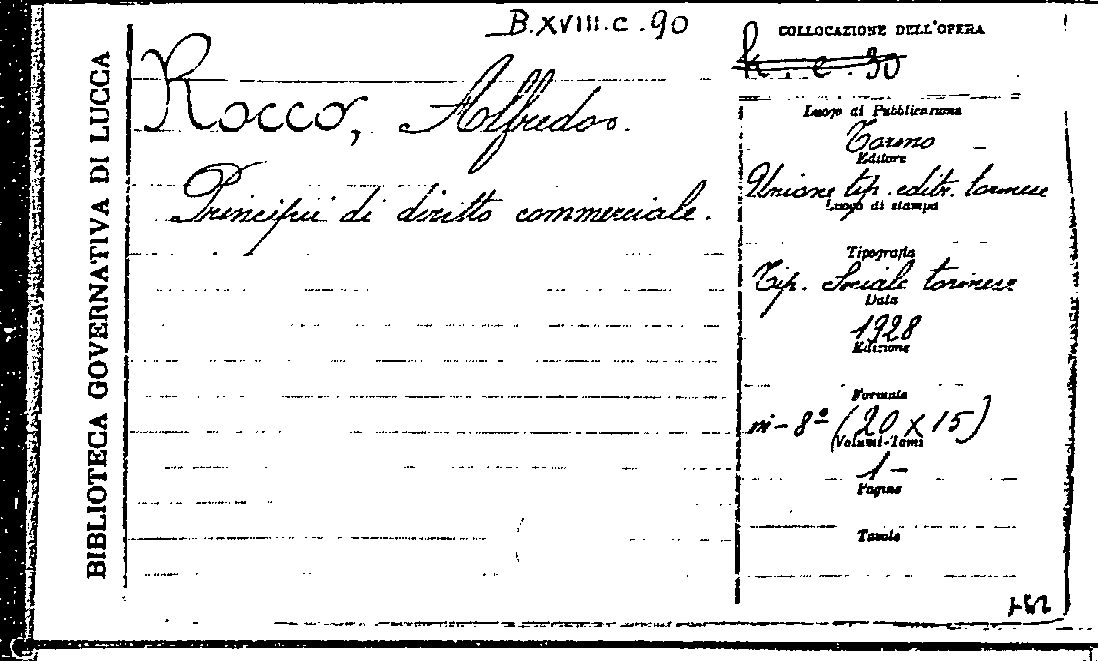 BIBLIOTECA GOVERNATIVA DI LUCCA
B.XVIII.c.90
Rocco, Alfredo.
Principii di diritto commerciale.
COLLOCAZIONE DELL'OPERA
Luogo di Pubblicazione
Torino
Editore
Unione tip. editr. torinese
Luogo di stampa
Tipografia
Tip. Sociale torinese
Data
1928
Edizione
Formato
in-8º (20 x 15)
Volumi-Tomi
1 -
Pagine
Tavole